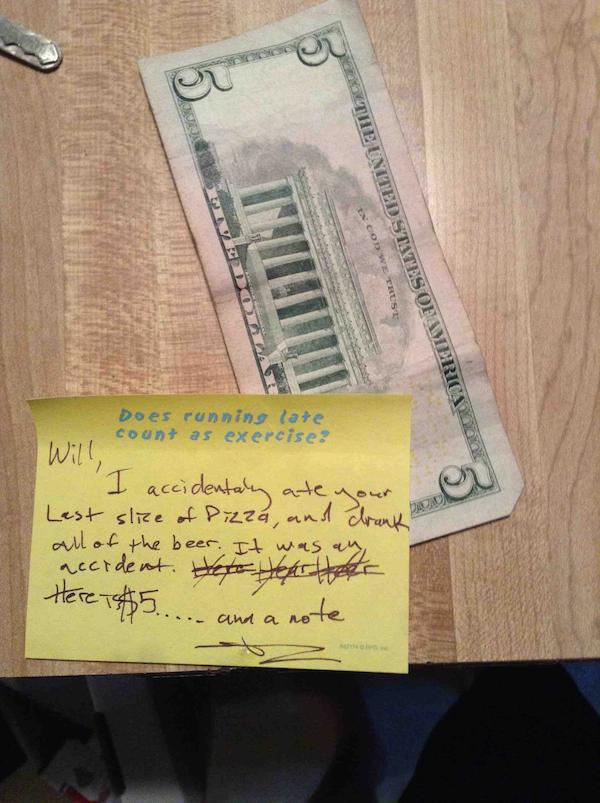 5
5
THE UNITED STATES OF AMERICA
IN GOD WE TRUST
5
Does running late
count as exercise?
Will,
I accidentaly ate your
Last slice of Pizza, and drank
all of the beer. It was an
accident.
Here is $5..... and a note